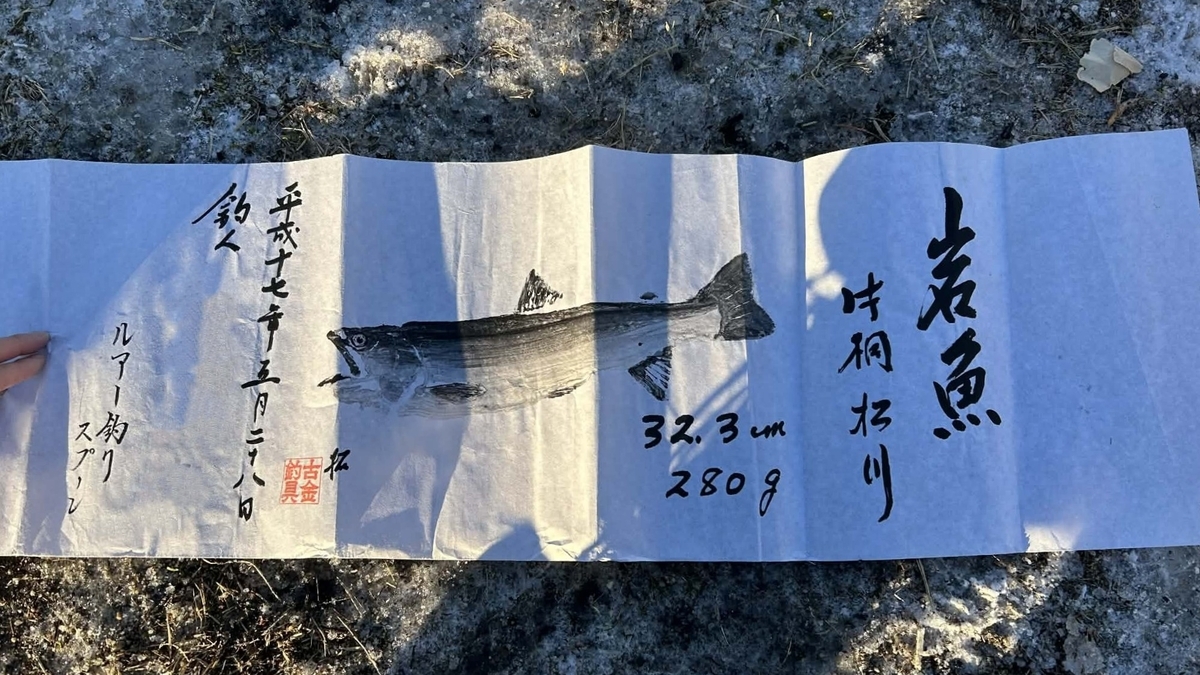 岩魚
片桐松川
32.3cm
280g
松
古金
釣具
平成十七年三月二十八日
釣人
ルアー釣り
スプーン